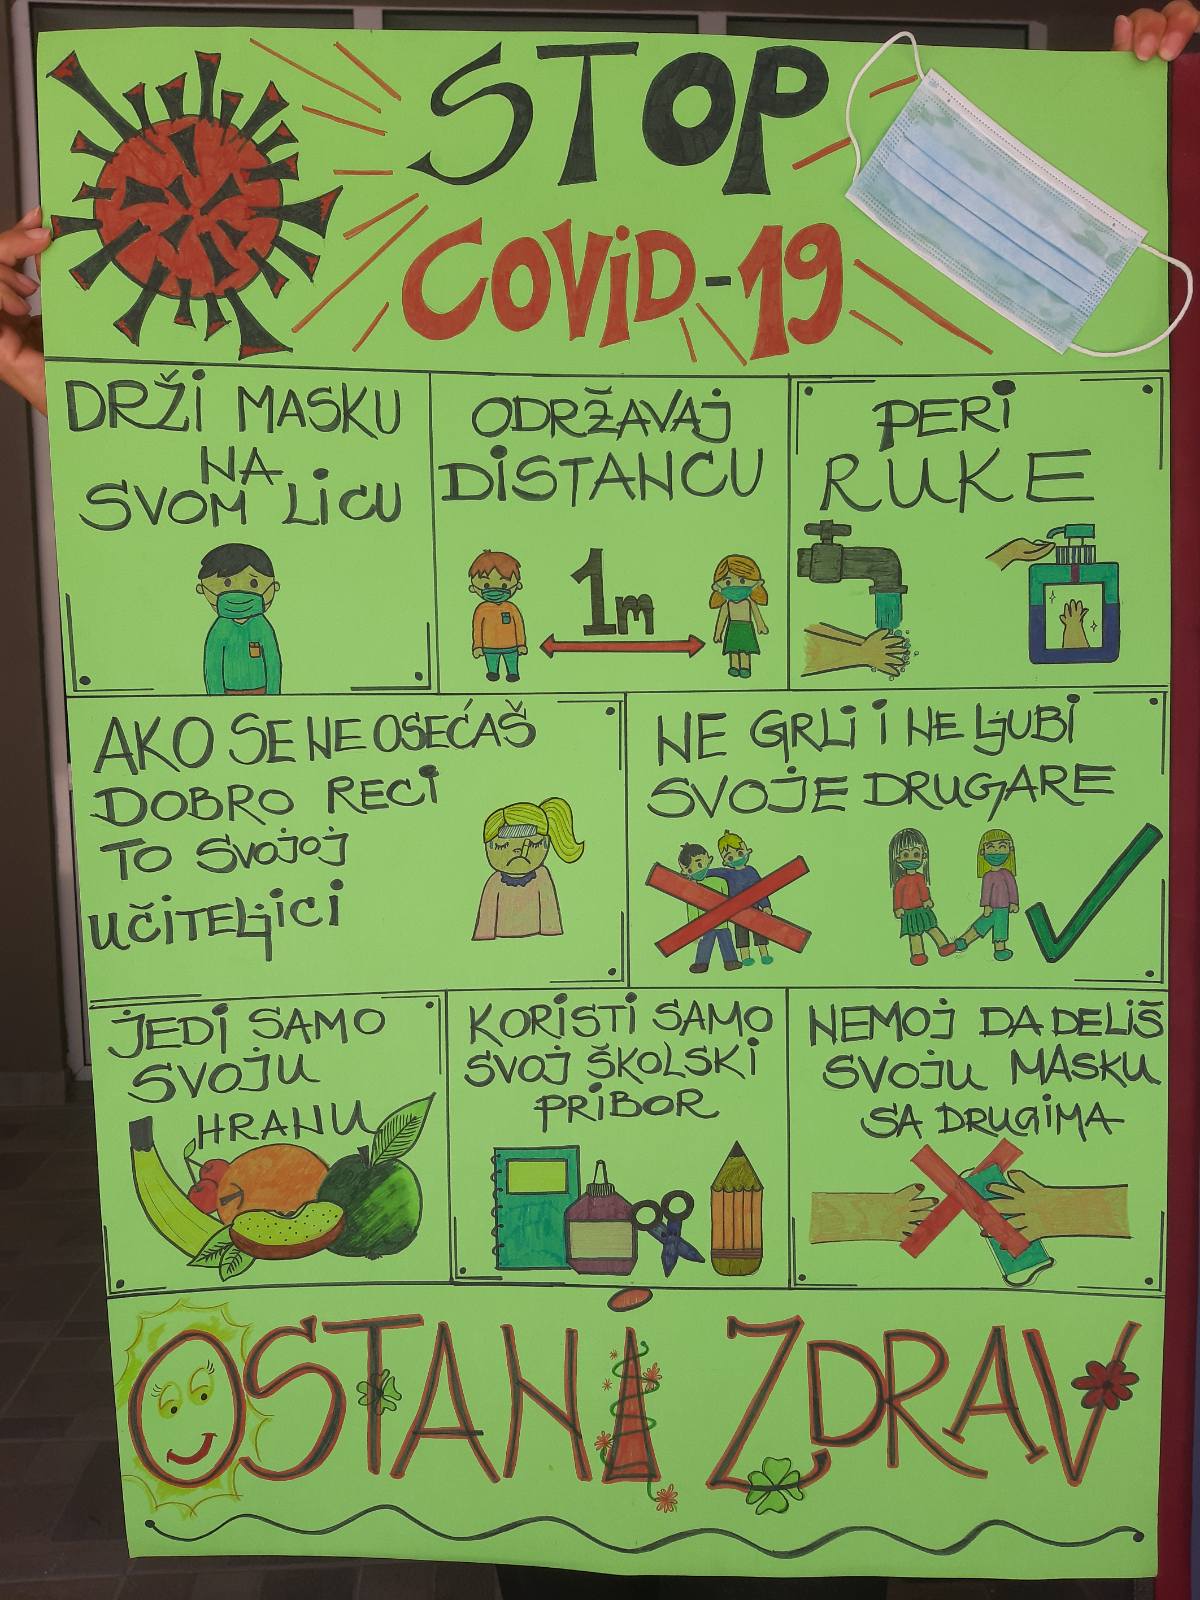 STOP
COVID-19
DRŽI MASKU
NA
SVOM LICU
ODRŽAVAJ
DISTANCU
1m
PERI
RUKE
AKO SE NE OSEĆAŠ
DOBRO RECI
TO SVOJOJ
UČITELJICI
NE GRLI I NE LJUBI
SVOJE DRUGARE
JEDI SAMO
SVOJU
HRANU
KORISTI SAMO
SVOJ ŠKOLSKI
PRIBOR
NEMOJ DA DELIŠ
SVOJU MASKU
SA DRUGIMA
OSTANI ZDRAV